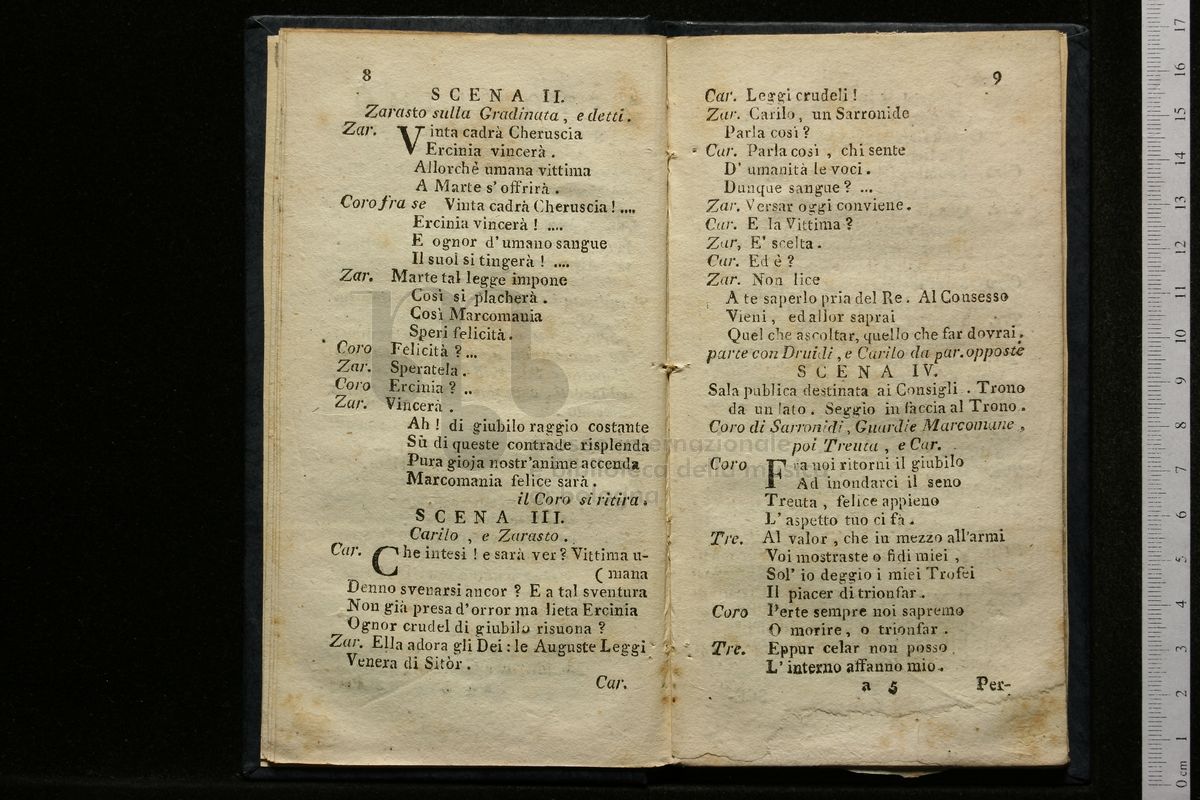 8
SCENA II.
Zarasto sulla Gradinata, e detti.
Zar. Vinta cadrà Cheruscia
Ercinia vincerà.
Allorchè umana vittima
A Marte s'offrirà.
Coro fra se Vinta cadrà Cheruscia!....
Ercinia vincerà! ....
E ognor d'umano sangue
Il suol si tingerà! ....
Zar. Marte tal legge impone
Così si placherà.
Così Marcomania
Speri felicità.
Coro Felicità?...
Zar. Speratela.
Coro Ercinia? ..
Zar. Vincerà.
Ah! di giubilo raggio costante
Sù di queste contrade risplenda
Pura gioja nostr'anime accenda
Marcomania felice sarà.
il Coro si ritira.
SCENA III.
Carilo, e Zarasto.
Car. Che intesi! e sarà ver? Vittima u-
(mana
Denno svenarsi ancor? E a tal sventura
Non già presa d'orror ma lieta Ercinia
Ognor crudel di giubilo risuona?
Zar. Ella adora gli Dei: le Auguste Leggi
Venera di Sitòr.
Car.
9
Car. Leggi crudeli!
Zar. Carilo, un Sarronide
Parla così?
Car. Parla così, chi sente
D'umanità le voci.
Dunque sangue? ...
Zar. Versar oggi conviene.
Car. E la Vittima?
Zar, E' scelta.
Car. Ed è?
Zar. Non lice
A te saperlo pria del Re. Al Consesso
Vieni, ed allor saprai
Quel che ascoltar, quello che far dovrai.
parte con Druidi, e Carilo da par. opposte
SCENA IV.
Sala publica destinata ai Consigli. Trono
da un lato. Seggio in faccia al Trono.
Coro di Sarronidi, Guardie Marcomane,
poi Treuta, e Car.
Coro Fra noi ritorni il giubilo
Ad inondarci il seno
Treuta, felice appieno
L'aspetto tuo ci fà.
Tre. Al valor, che in mezzo all'armi
Voi mostraste o fidi miei,
Sol' io deggio i miei Trofei
Il piacer di trionfar.
Coro Perte sempre noi sapremo
O morire, o trionfar.
Tre. Eppur celar non posso
L'interno affanno mio.
a 5 Per-
internazionale
biblioteca della musica
0 cm 1 2 3 4 5 6 7 8 9 10 11 12 13 14 15 16 17